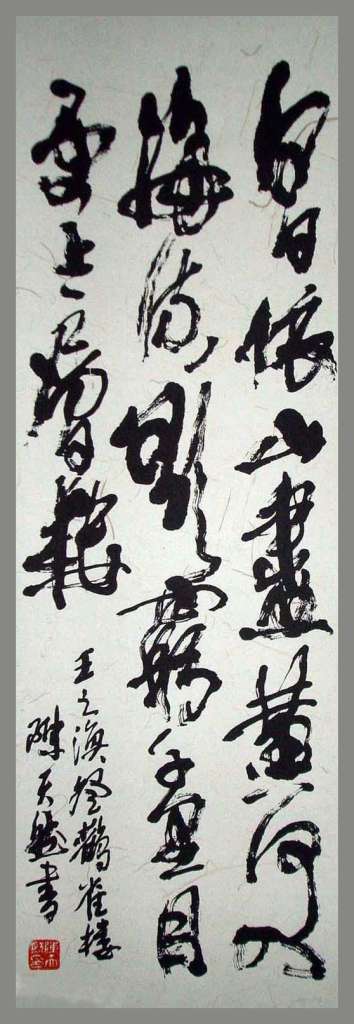 白日依山盡黃河入
海流欲窮千里目
更上一層樓
王之渙登鸛雀樓
陳天然書